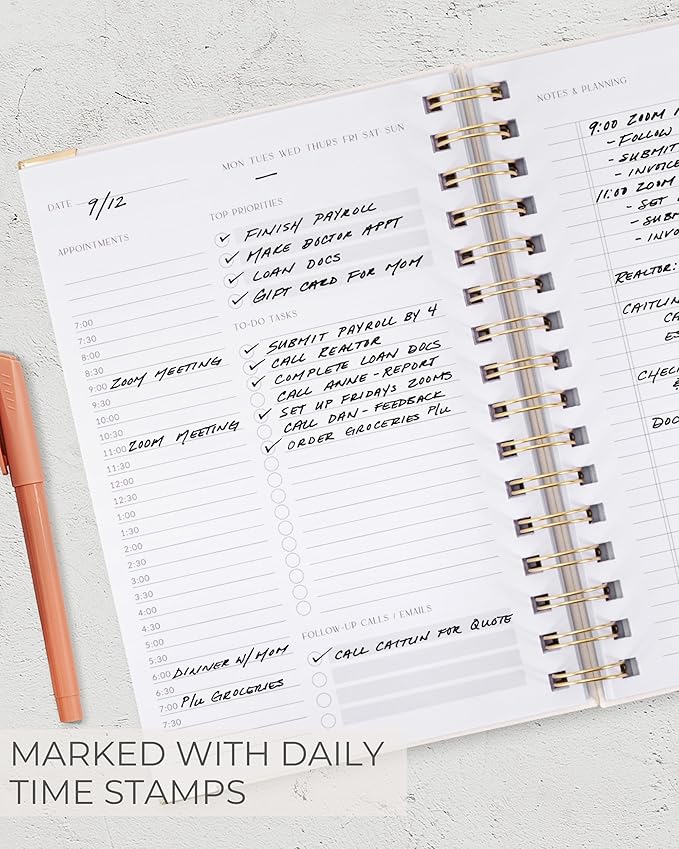 MON TUES WED THURS FRI SAT SUN
DATE 9/12
APPOINTMENTS
7:00
7:30
8:00
8:30
9:00 ZOOM MEETING
9:30
10:00
10:30
11:00 ZOOM MEETING
11:30
12:00
12:30
1:00
1:30
2:00
2:30
3:00
3:30
4:00
4:30
5:00
5:30
6:00 DINNER W/ MOM
6:30
7:00 P/U GROCERIES
7:30
TOP PRIORITIES
FINISH PAYROLL
MAKE DOCTOR APPT
LOAN DOCS
GIFT CARD FOR MOM
TO-DO TASKS
SUBMIT PAYROLL BY 4
CALL REALTOR
COMPLETE LOAN DOCS
CALL ANNE - REPORT
SET UP FRIDAYS ZOOMS
CALL DAN - FEEDBACK
ORDER GROCERIES P/U
FOLLOW-UP CALLS / EMAILS
CALL CAITLIN FOR QUOTE
NOTES & PLANNING
9:00 ZOOM
- FOLLOW
- SUBMIT
- INVOICE
11:00 ZOOM
- SET
- SUBM
- INVO
REALTOR:
CAITLIN
CA
ES
CHEC
DOC
MARKED WITH DAILY
TIME STAMPS